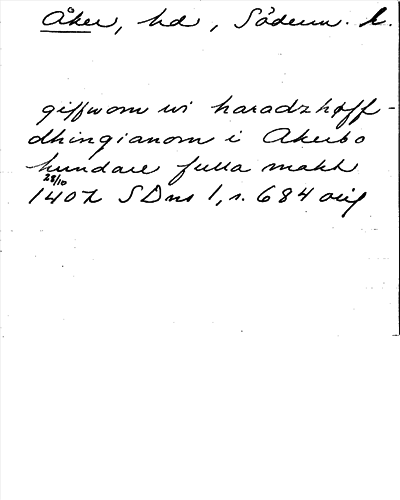 Åker, hd, Söderm. l.
giffwom wi haradzhøff-
dhingianom i Akerbo
hundare fulla makt
28/10
1407 SDns 1, s. 684 orig